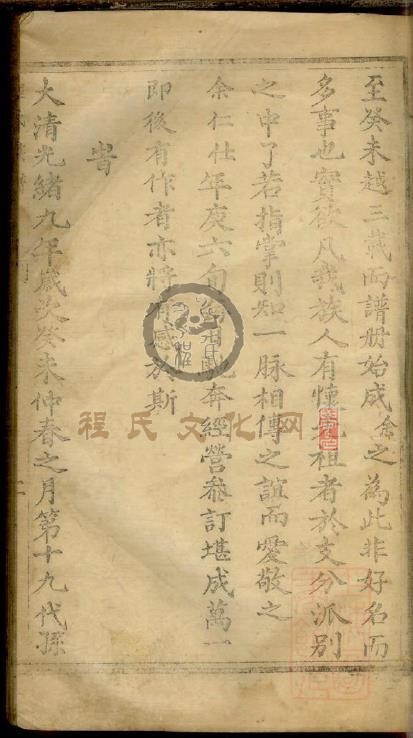 至癸未越三載而譜册始成余之為此非好名而
多事也實欲凡我族人有懷先祖者於支分派別
之中了若指掌則知一脉相傳之誼而愛敬之
余仁仕年庚六旬 馳奔經營叅訂堪成萬一
即後有作者亦將有感於斯
旹
大清光緒九年歲次癸未仲春之月第十九代孫
程氏文化网